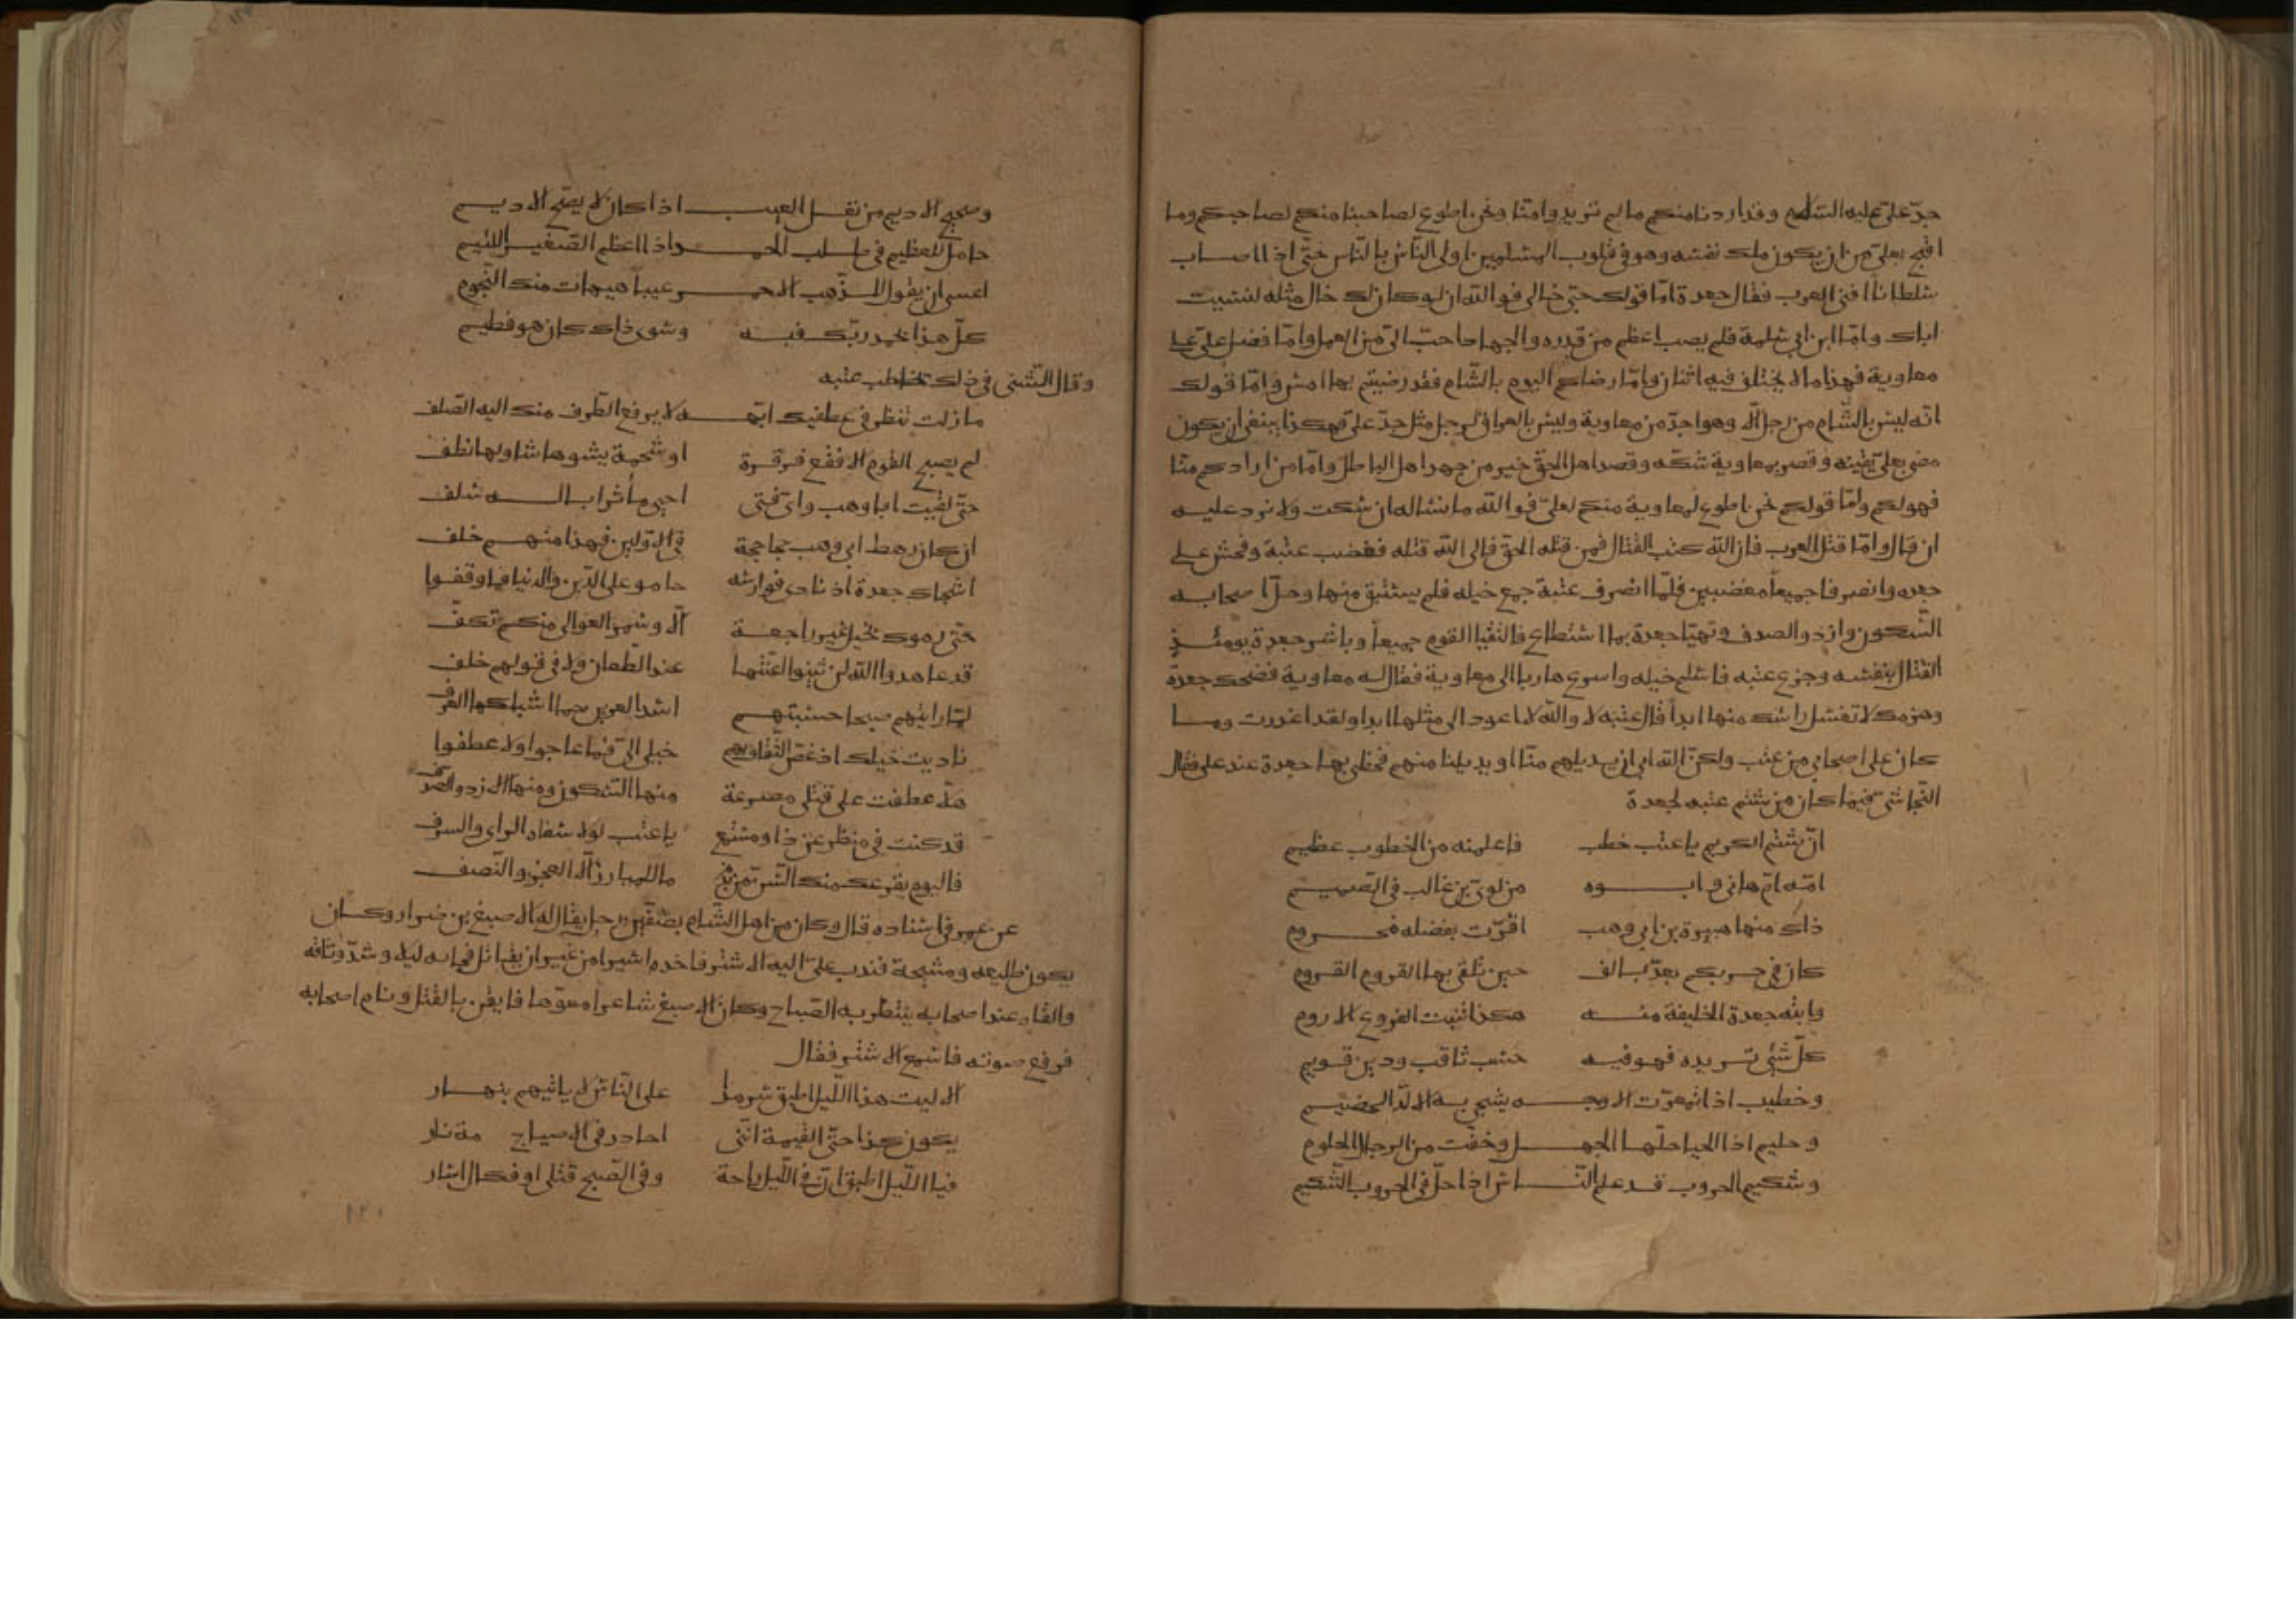 جدّ علىّ عليه السّلام وقد اردنا منكم ما لم تريدوا منّا ونحن اطوع لصاحبنا منكم لصاحبكم وما
اقبح بعلىّ من ان يكون ملك نفسه وهو فى قلوب المسلمين اولى النّاس بالنّاس حتّى اذا اصاب
سلطانا افنى العرب فقال جعدة امّا قولك حبّى خالى فو الله ان لو كان لك خال مثله لنسيت
اباك وامّا ابن ابى سلمة فلم يصب اعظم من قدره والجهاد احبّ الىّ من العمل وامّا فضل علىّ على
معاوية فهذا ما لا يختلف فيه اثنان وامّا رضاكم اليوم بالشّام فقد رضيتم بها امس وامّا قولك
انّه ليس بالشّام من رجل الّا وهو اجدّ من معاوية وليس بالعراق لرجل مثل جدّ علىّ فهكذا ينبغى ان يكون
مضى بعلىّ يقينه وقصر بمعاوية شكّه وقصد اهل الحقّ خير من جهد اهل الباطل وامّا من ارادكم منّا
فهو لكم وامّا قولكم نحن اطوع لمعاوية منكم لعلىّ فو الله ما نساله ان سكت ولا نرد عليه
ان قال وامّا قتل العرب فان الله كتب القتال فمن قتله الحقّ فالى الله قتله فغضب عتبة وفحش على
جعده وانصرفا جميعاً مغضبين فلمّا انصرف عتبة جمع خيله فلم يستبق منها وجلّ اصحابه
السّكون وازد والصدف وتهيّا جعدة بما استطاع فالتقيا القوم جميعاً وباشر جعدة يومئذٍ
القتال بنفسه وجزع عتبه فاسلم خيله واسرع هاربا الى معاوية فقال له معاوية فضحك جعدة
وهزمك لا تغسل راسك منها ابداً قال عتبه لا والله لا اعود الى مثلها ابدا ولقد اعذرت وما
كان على اصحابى من عتب ولكن الله ابى ان يديلهم منّا او يديلنا منهم فحظى بها جعدة عند على فقال
النّجاشى فيما كان من شتم عتبه لجعدة
انّ شتم الكريم يا عتب خطب فاعلمنه من الخطوب عظيم
امّه امّ هانى وابوه من لوىّ بن غالب فى الصّميم
ذاك منها هبيرة بن ابى وهب اقرّت بفضله مخزوم
كان فى حربكم يعدّ بالف حين تلقى بها القروم القروم
وابنه جعدة الخليفة منه هكذا تنبت الفروع الاروم
كلّ شئ تريده فهو فيه حسب ثاقب ودين قويم
وخطيب اذا تمعّرت الاوجه يشجى به الالدّ الخصيم
وحليم اذا الحبا حلّها الجهل وخفّت من الرجال الحلوم
وشكيم الحروب قد علم النّاس اذا حلّ فى الحروب الشّكيم
وصحيح الاديم من نغل العيب اذا كان لا يصحّ الاديم
حامل للعظيم فى طلب الحمد اذا اعظم الصّغير اللئيم
ما عسى ان يقول للذّهب الاحمر عيبا هيهات منك النّجوم
كلّ هذا بحمد ربّك فيه وسوى ذاك كان هو فطيم
وقال الشّنى فى ذلك تخاطب عتبه
ما زلت تنظر فى عطفيك ابّهة لا يرفع الطّرف منك اليه الصّلف
لم يصبح القوم الا فقع قرقرة او شحمة يشوها شاو بها نطف
حتّى لقيت ابا وهب واىّ فتى احيى مآثر اباء له سلف
ان كان رهط ابى وهب جحاجحة فى الاوّلين فهذا منهم خلف
اشجاك جعدة اذ نادى فوارسه حامو على الدّين والدنيا فما وقفوا
حتّى رموك بخيل غير راجعة الّا وسمر العوالى منكم تكف
قد عاهدوا الله لن يثنوا اعنّتها عند الطّعان ولا فى قولهم خلف
لمّا رايتهم صبحا حسبتهم اسد العرين حما اشبالها الغرف
ناديت خيلك اذ عضّ الثّقاف بهم خيلى الىّ فما عاجوا ولا عطفوا
هلّا عطفت على قتلى مصرعة منها السّكون ومنها الازد والصدف
قد كنت فى منظر عن ذا ومستمع يا عتب لولا سفاه الراى والسرف
فاليوم يقرع منك السّنّ من ندم ما للمبارز الّا العجز والنّصف
عن عمر فى اسناده قال وكان من اهل الشّام بصفّين رجل يقال له الاصبغ بن ضرار وكان
يكون طليعه ومسلحة فندب علىّ اليه الاشتر فاخذه اسيرا من غير ان يقاتل فجا به ليلا وشدّ وثاقه
والقاه عند اصحابه ينتظر به الصّباح وكان الاصبغ شاعرا مفوّها فايقن بالقتل ونام اصحابه
فرفع صوته فاسمع الاشتر فقال
الا ليت هذا اللّيل اطبق سرمدا على النّاس لا ياتيهم بنهار
يكون كذا حتّى القيمة انّنى احاذر فى الاصباح نار
فيا اللّيل اطبق انّ فى اللّيل راحة وفى الصّبح قتلى او فكاك اسار